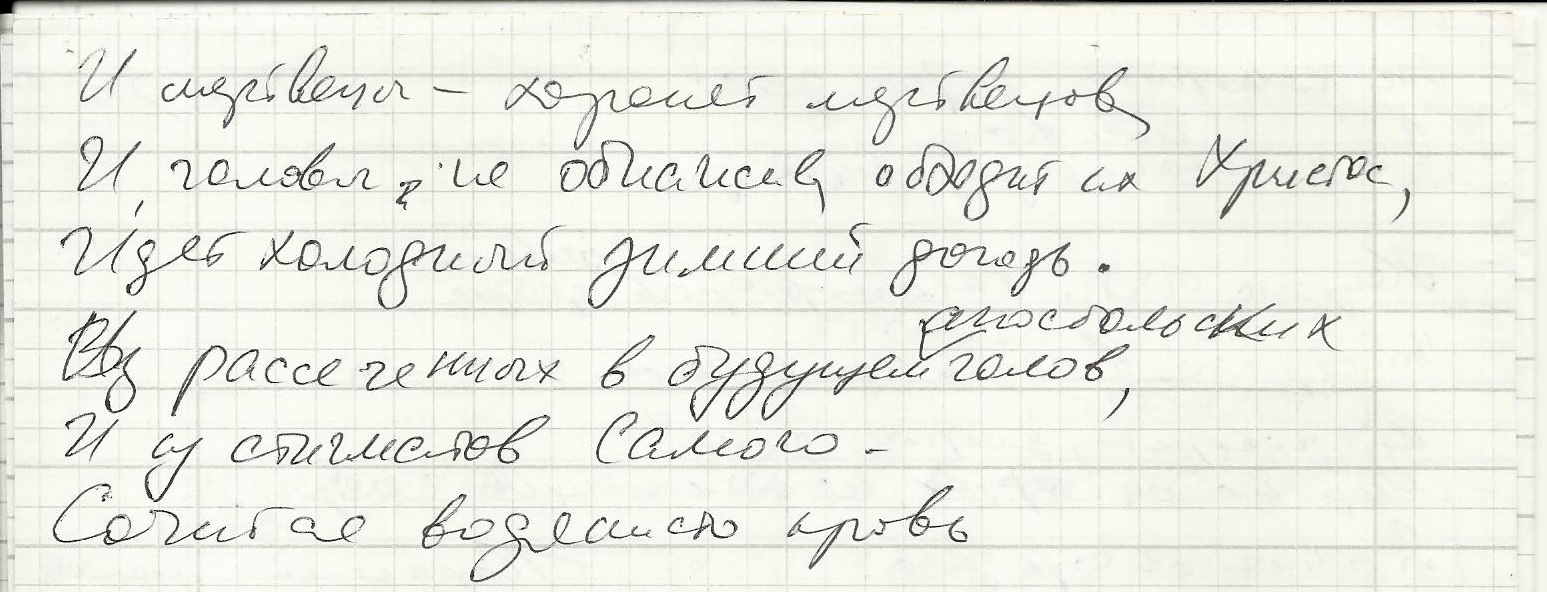 И мертвецы – хоронят мертвецов,
И головы, не обнажив, обходит их Христос,
Идет холодный зимний дождь.
Из рассеченных в будущем апостольских голов,
И из стигматов Самого –
водянисто кровь